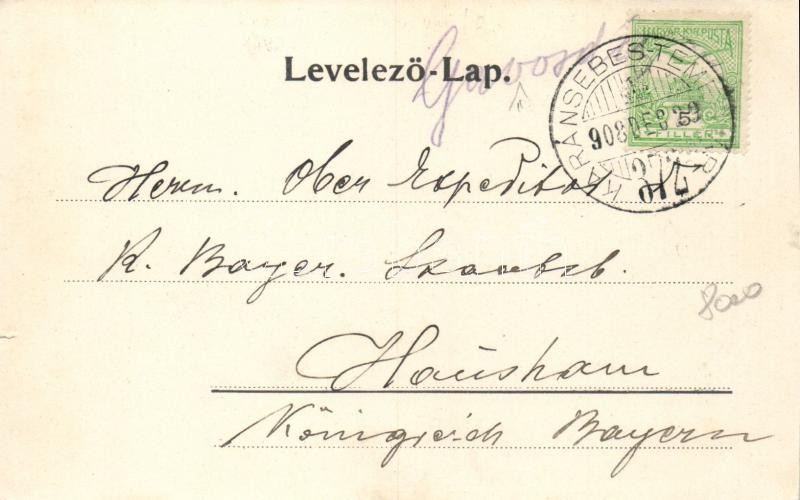 MAGYAR KIR. POSTA
5
FILLER
Levelezö-Lap.
KARÁNSEBES-TEMESVÁR
908 DEC 29
Herrn. Ober Expeditor
K. Bayer. Staatsb.
Hausham
Königreich Bayern
8000